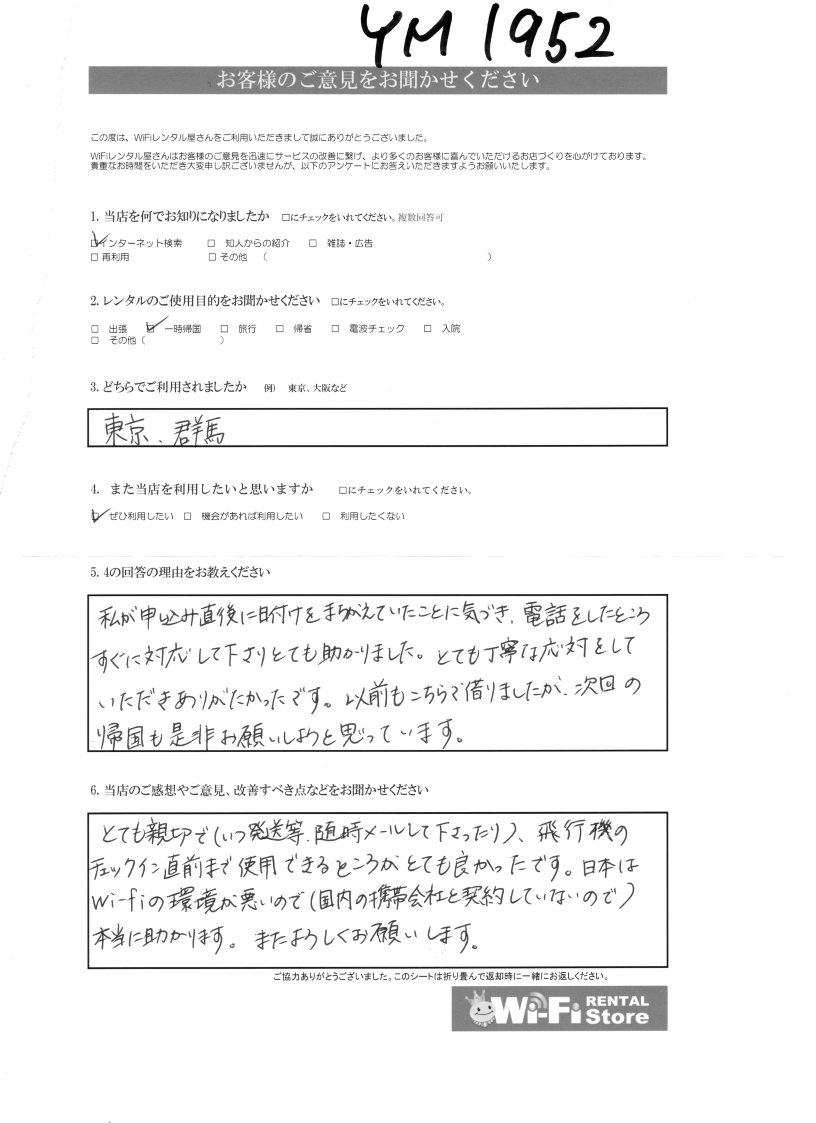 YM1952
お客様のご意見をお聞かせください
この度は、WiFiレンタル屋さんをご利用いただきまして誠にありがとうございました。
WiFiレンタル屋さんはお客様のご意見を迅速にサービスの改善に繋げ、より多くのお客様に喜んでいただけるお店づくりを心がけております。
貴重なお時間をいただき大変申し訳ございませんが、以下のアンケートにお答えいただきますようお願いいたします。
1. 当店を何でお知りになりましたか □にチェックをいれてください。複数回答可
☑インターネット検索 □ 知人からの紹介 □ 雑誌・広告
□ 再利用 □ その他 （ ）
2. レンタルのご使用目的をお聞かせください □にチェックをいれてください。
□ 出張 ☑ 一時帰国 □ 旅行 □ 帰省 □ 電波チェック □ 入院
□ その他（ ）
3. どちらでご利用されましたか 例） 東京、大阪など
東京、群馬
4. また当店を利用したいと思いますか □にチェックをいれてください。
☑ ぜひ利用したい □ 機会があれば利用したい □ 利用したくない
5. 4の回答の理由をお教えください
私が申込み直後に日付けをまちがえていたことに気づき、電話をしたところ
すぐに対応して下さりとても助かりました。とても丁寧な応対をして
いただきありがたかったです。以前もこちらで借りましたが、次回の
帰国も是非お願いしようと思っています。
6. 当店のご感想やご意見、改善すべき点などをお聞かせください
とても親切で（いつ発送等、随時メールして下さったり）、飛行機の
チェックイン直前まで使用できるところがとても良かったです。日本は
Wi-fiの環境が悪いので（国内の携帯会社と契約していないので）
本当に助かります。またよろしくお願いします。
ご協力ありがとうございました。このシートは折り畳んで返却時に一緒にお返しください。
Wi-Fi RENTAL
Store